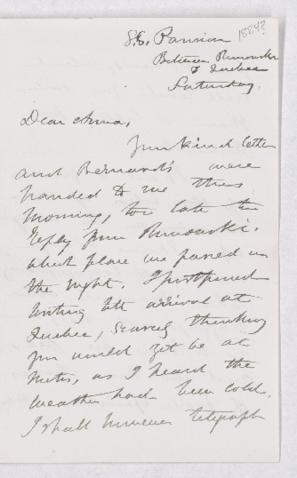 1884?
S.S. Parisian
Between Rimouski
& Quebec
Saturday.
Dear Anna,
Your kind letter
and Bernard's were
handed to me this
morning, too late to
reply from Rimouski,
which place we passed in
the night. I postponed
writing till arrival at
Quebec, scarcely thinking
you would yet be at
Metis, as I heard the
weather had been cold.
I shall however telegraph